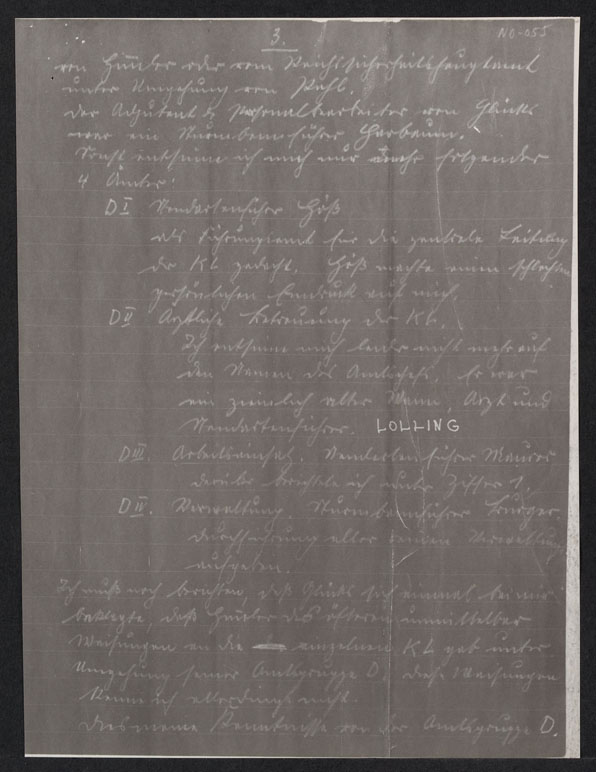 3.
NO-055
von Himmler oder vom Reichssicherheitshauptamt
unter Umgehung von Pohl.
Der Adjutant & Personalbearbeiter von Glücks
war ein Sturmbannführer Harbaum.
Sonst entsinne ich mich nur mehr folgender
4 Ämter:
D I Standartenführer Höß
als Führungsamt für die zentrale Leitung
der KL gedacht. Höß machte einen schlechten
persönlichen Eindruck auf mich.
D II Ärztliche Betreuung der KL.
Ich entsinne mich leider nicht mehr auf
den Namen des Amtschefs. Er war
ein ziemlich alter Mann, Arzt und
Standartenführer. LOLLING
D III. Arbeitseinsatz. Standartenführer Maurer
darüber berichtete ich unter Ziffer 1.
D IV. Verwaltung. Sturmbannführer Burger.
Durchführung aller Verwaltungs
aufgaben.
Ich muß noch berichten, daß Glücks sich einmal bei mir
beklagte, daß Himmler des öfteren unmittelbar
Weisungen an die einzelnen KL gab unter
Umgehung seiner Amtsgruppe D. Diese Weisungen
kenne ich allerdings nicht.
Dies meine Kenntnisse von der Amtsgruppe D.